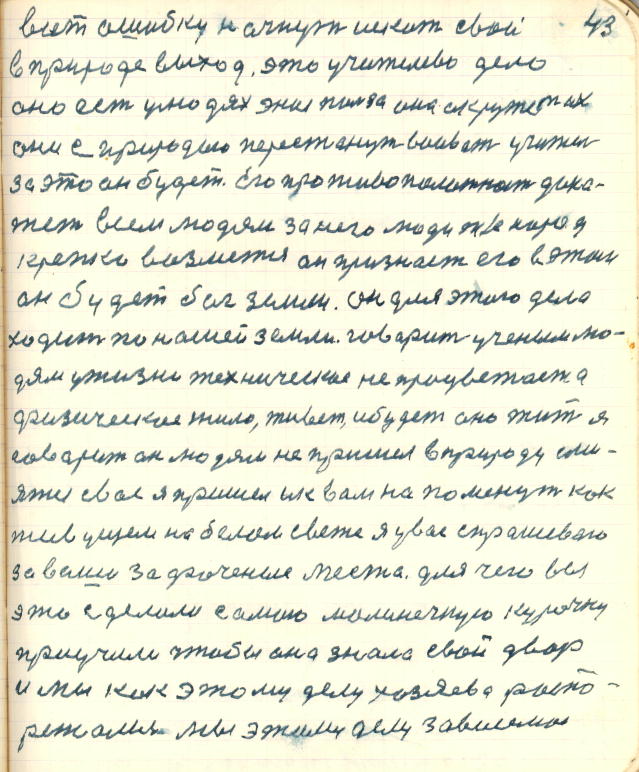 вют ошибку начнут искат свой 43
в природе выход, это учителево дело
оно ест у людях
они с природою перестанут воеват учител
за это он будет. Его противоположност дока-
жет всем людям за него люди же народ
крепко возмется он признает его в этом
он будет бог земли. он для этого дела
ходит по нашей земли. говорит ученым лю-
дям у жизни техническое не процветает а
физическое жило, живет, и будет оно жит я
говорит он людям не пришел в природу
свое я пришел к вам напоменут как
живущем на белом свете я у вас спрашеваю
за ваши места. для чего вы
это сделали самою малинечкую курочку
приучили чтобы она знала свой двор
и мы как этому делу хозяева распо-
режались мы этому делу зависемы